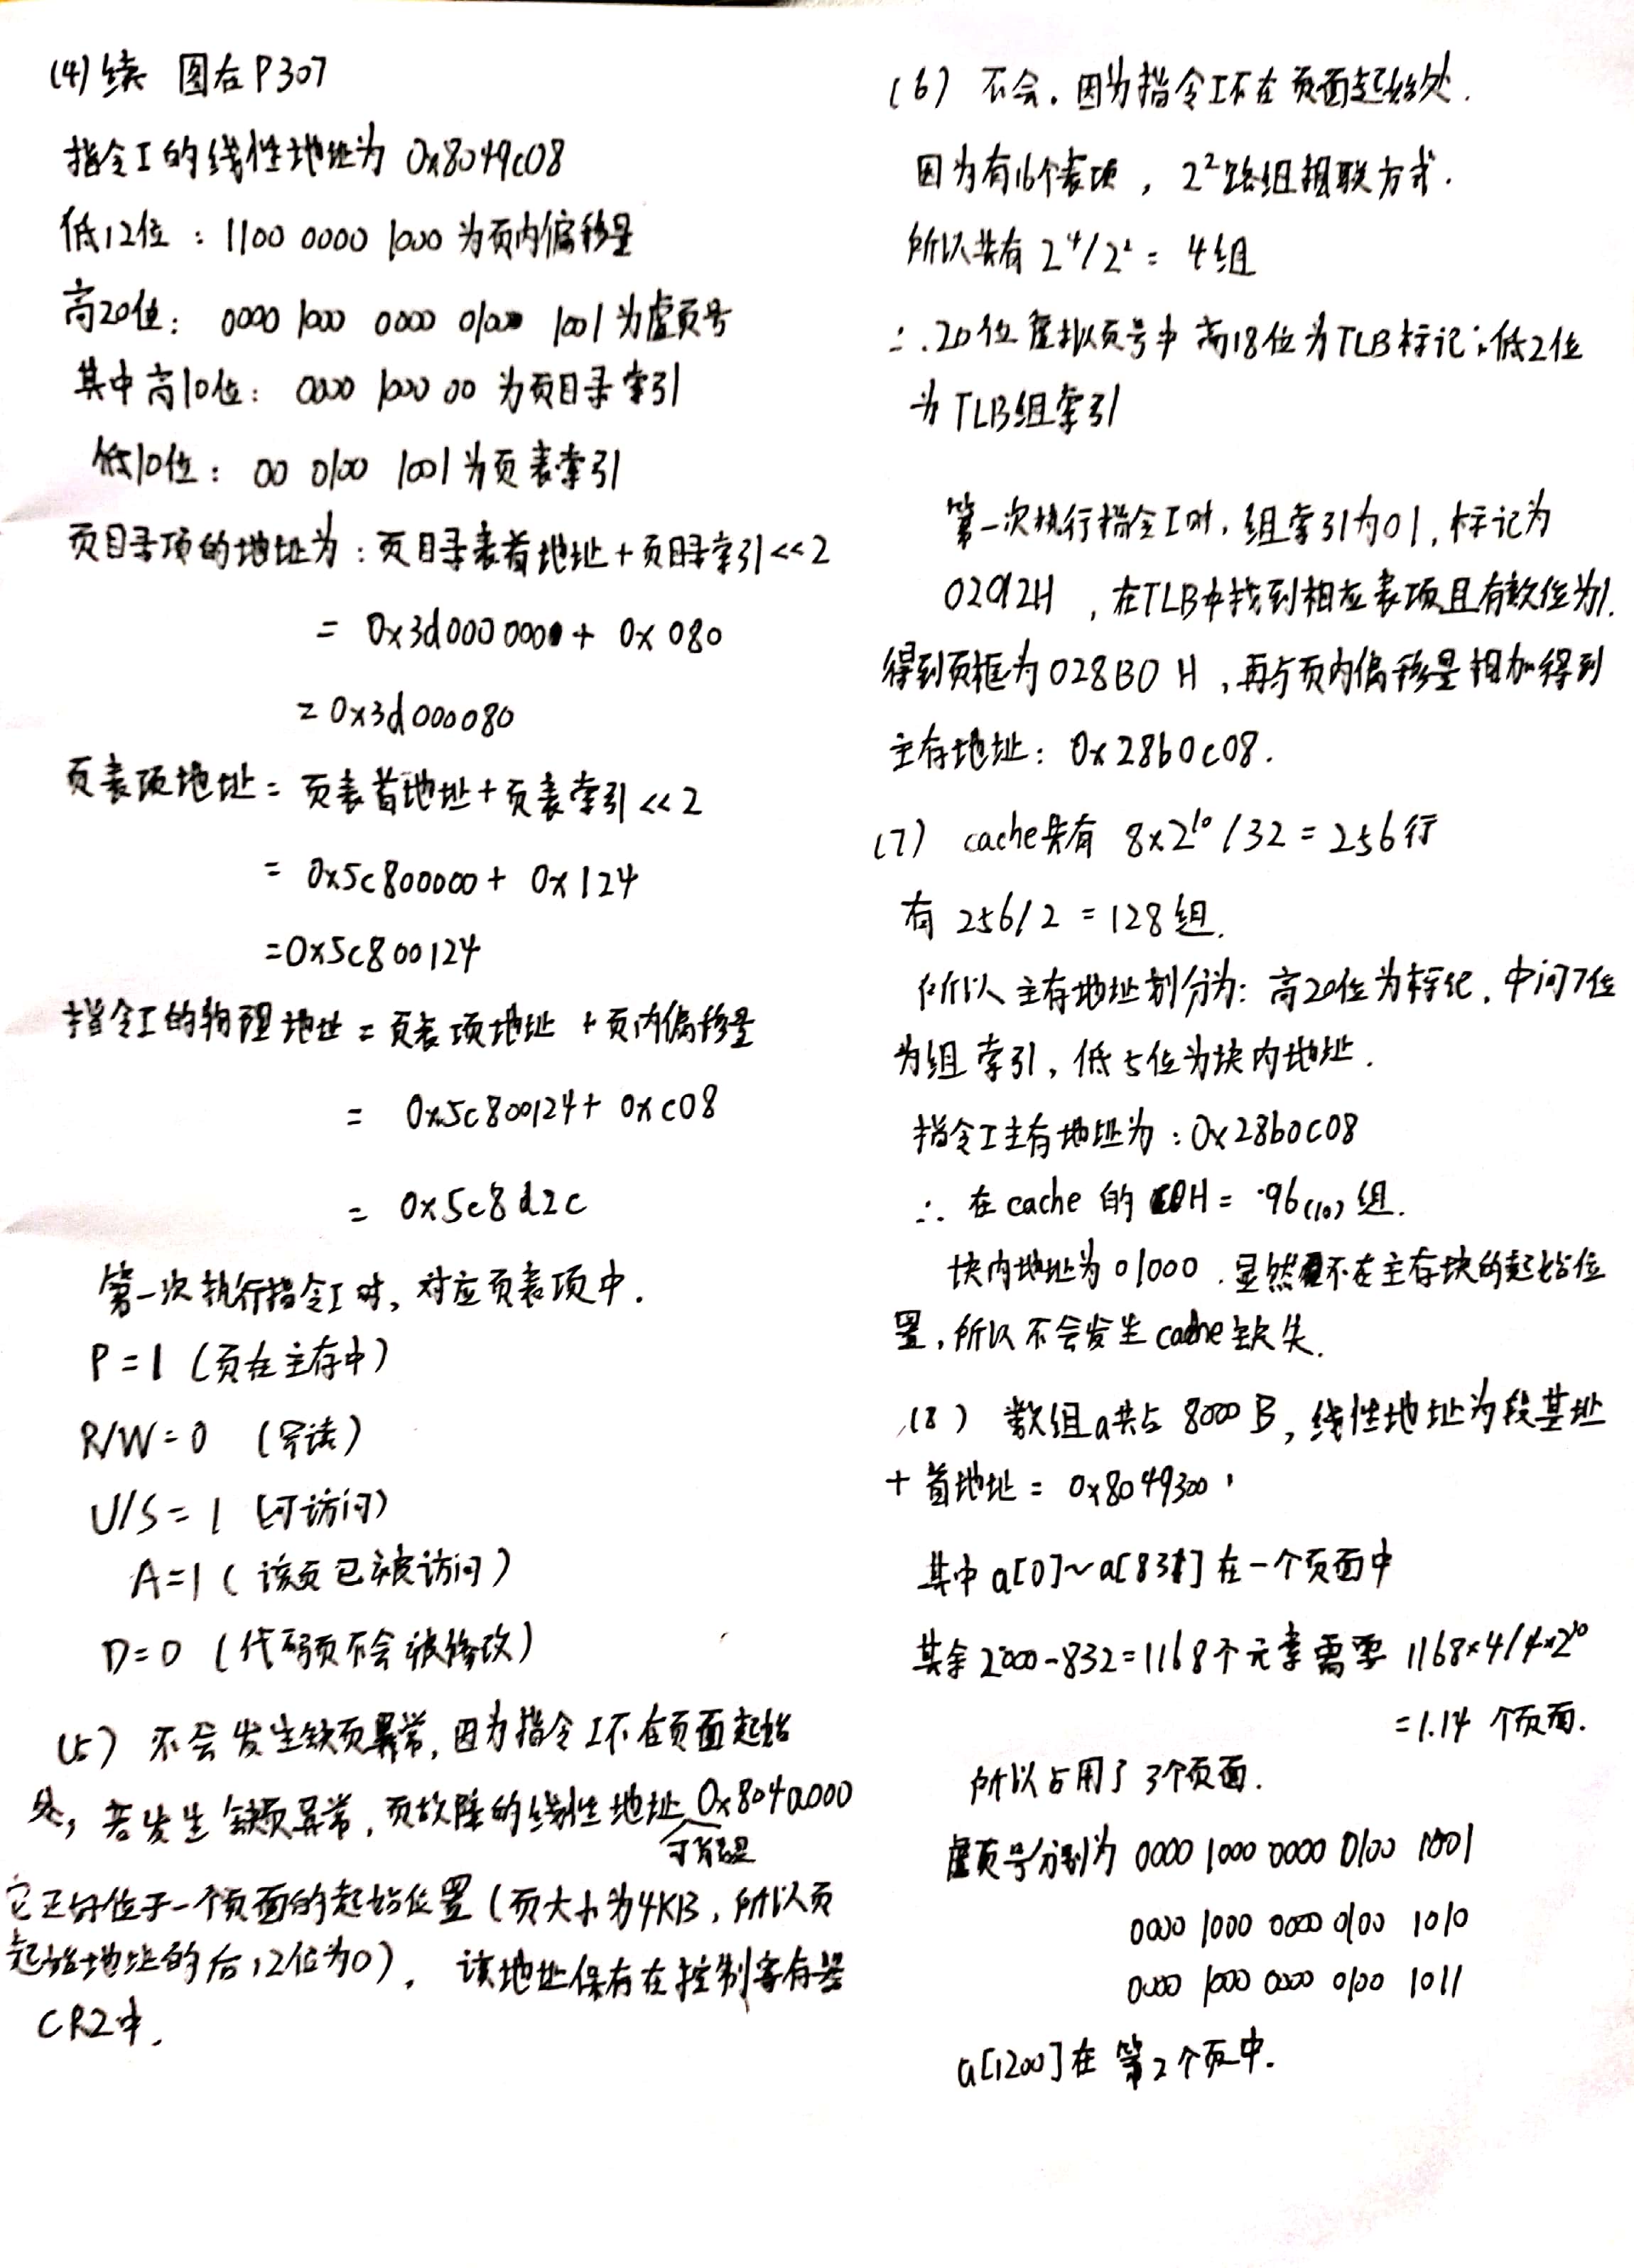 (4) 续 图在P307
指令I的线性地址为 0x8049c08
低12位：1100 0000 1000 为页内偏移量
高20位：0000 1000 0000 0100 1001为虚页号
其中高10位：0000 1000 00 为页目录索引
低10位：00 0100 1001为页表索引
页目录项的地址为：页目录表首地址+页目录索引<<2
= 0x3d000 0000+ 0x080
= 0x3d000080
页表项地址= 页表首地址+页表索引<<2
= 0x5c800000+ 0x124
=0x5c800124
指令I的物理地址=页表项地址 +页内偏移量
= 0x5c800124+ 0xc08
= 0x5c8d2c
第一次执行指令I时，对应页表项中.
P=1 (页在主存中)
R/W=0 (只读)
U/S=1 (可访问)
A=1 (该页已被访问)
D=0 (代码页不会被修改)
(5) 不会发生缺页异常，因为指令I不在页面起始
处，若发生缺页异常，页故障的线性地址可能是0x804a000
它正好位于一个页面的起始位置(页大小为4KB，所以页
起始地址的后12位为0)，该地址保存在控制寄存器
CR2中.
(6) 不会。因为指令I不在页面起始处.
因为有16个表项，2²路组相联方式.
所以共有 2⁴/2² = 4组
∴.20位虚拟页号中高18位为TLB标记；低2位
为TLB组索引
第一次执行指令I时，组索引为01，标记为
02012H ，在TLB中找到相应表项且有效位为1.
得到页框为028B0 H，再与页内偏移量相加得到
主存地址：0x28b0c08.
(7) cache共有 8×2¹⁰/32=256行
有 256/2 =128组.
所以主存地址划分为：高20位为标记，中间7位
为组索引，低5位为块内地址.
指令I主存地址为：0x28b0c08
∴ 在cache的 60H= 96(10)组.
块内地址为01000.显然不在主存块的起始位
置，所以不会发生cache缺失.
(8) 数组a共占 8000B，线性地址为段基址
+首地址= 0x8049300，
其中a[0]~a[831]在一个页面中
其余2000-832=1168个元素需要 1168×4/4×2¹⁰
=1.14 个页面.
所以占用了3个页面.
虚页号分别为 0000 1000 0000 0100 1001
0000 1000 0000 0100 1010
0000 1000 0000 0100 1011
a[1200]在第2个页中.